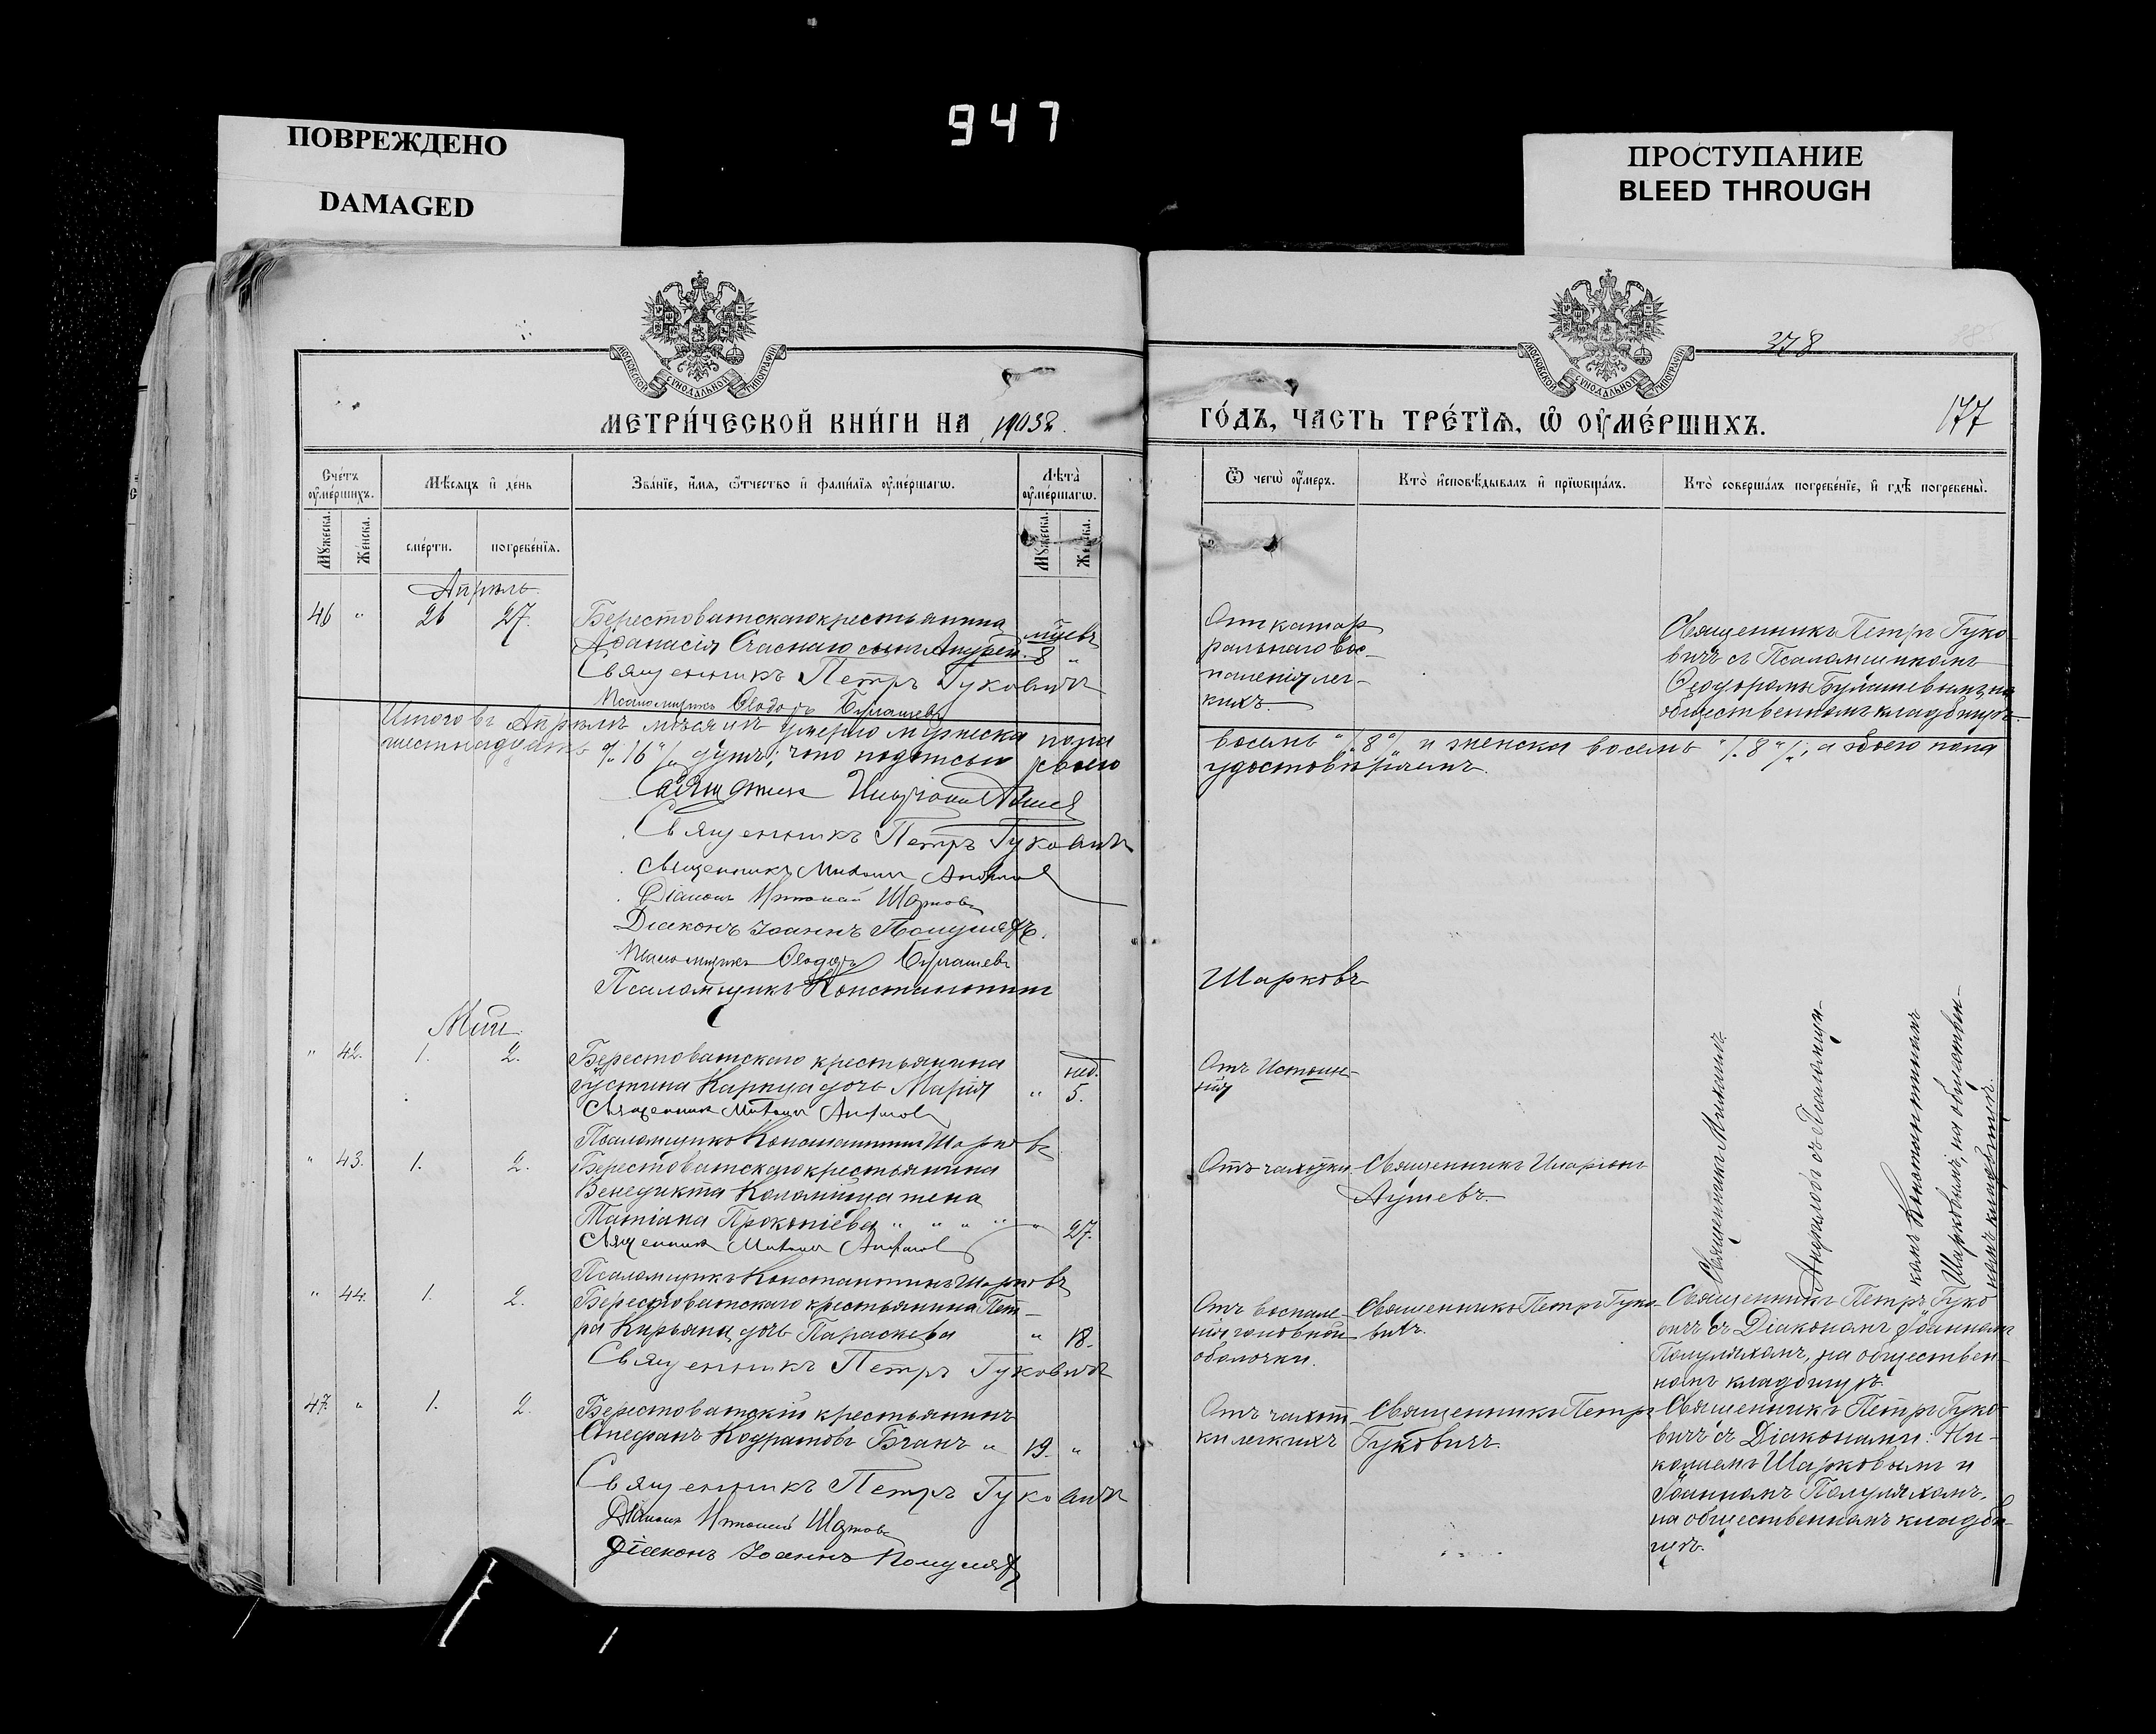 947
ПОВРЕЖДЕНО
DAMAGED
ПРОСТУПАНИЕ
BLEED THROUGH
МОСКОВСКОЙ СѴНОДАЛЬНОЙ ТИПОГРАФІИ
МОСКОВСКОЙ СѴНОДАЛЬНОЙ ТИПОГРАФІИ
278
177
МЕТРИ́ЧЕСКОЙ КНИ́ГИ НА 1903й.
ГО́ДЪ, ЧАСТЬ ТРЕ́ТІѦ, Ѽ ОУ҆МЕ́РШИХЪ.
Сче́тъ оу҆ме́ршихъ.
Мꙋ́жеска.
Же́нска.
Мѣ́сяцъ и҆ де́нь
сме́рти.
погребе́нїѧ.
Зва́нїе, и҆́мѧ, ѻ҆́тчество и҆ фами́лїѧ оу҆ме́ршагѡ.
Лѣ́та оу҆ме́ршагѡ.
Мꙋ́жеска.
Же́нска.
Ѿ чегѡ̀ оу҆́меръ.
Кто̀ и҆сповѣ́дывалъ и҆ прїѡбща́лъ.
Кто̀ соверша́лъ погребе́нїе, и҆ гдѣ̀ погребены̀.
Апрѣль.
46 " 26 27. Берестоватскаго крестьянина
Аѳанасія Счаснаго сынъ Андрей. мѣсяцевъ 8 "
Священникъ Петръ Гуковичъ
Псаломщикъ Ѳеодоръ Булашевъ
Отъ катар
ральнаго вос-
паленія лег-
кихъ.
Священникъ Петръ Гуко-
вичъ съ Псаломщикомъ
Ѳеодоромъ Булашевымъ, на
общественномъ кладбищѣ.
Итого въ Апрѣлѣ мѣсяцѣ умерло мужеска пола восемь "/8"/ и женска восемь "/8"/, а обоего пола
шестнадцать "/16"/ душъ; что подписью своею удостовѣряемъ.
Священникъ Иларіонъ
Священникъ Петръ Гуковичъ
Священникъ Михаилъ Анфилов
Діаконъ Николай Шарковъ
Діаконъ Іоаннъ Полуляхъ.
Псаломщикъ Ѳеодоръ Булашевъ
Псаломщикъ Константинъ Шарковъ
Май.
" 42. 1. 2. Берестоватскаго крестьянина
Іустина Карпца дочь Марія " нед. 5.
Священникъ Михаилъ Анфилов
Псаломщикъ Константинъ Шарковъ
Отъ Истоще-
нія
Священникъ Михаилъ
Анфиловъ съ Псаломщи-
комъ Константиномъ
Шарковымъ, на обществен-
номъ кладбищѣ.
" 43. 1. 2. Берестоватскаго крестьянина
Венедикта Коломійца жена
Татіана Прокопіева " " " " " 27.
Священникъ Михаилъ Анфилов
Псаломщикъ Константинъ Шарковъ
Отъ чахотки. Священникъ Иларіонъ
" 44. 1. 2. Берестоватскаго крестьянина Пет-
ра Кирьяна дочь Параскева " 18.
Священникъ Петръ Гуковичъ
Отъ воспале-
нія головной
оболочки.
Священникъ Петръ Гуко-
вичъ.
Священникъ Петръ Гуко
вичъ съ Діакономъ Іоанномъ
Полуляхомъ, на обществен-
номъ кладбищѣ.
47 " 1. 2. Берестоватскій крестьянинъ
Стефанъ Кодратовъ " 19. "
Священникъ Петръ Гуковичъ
Діаконъ Николай Шарковъ
Діаконъ Іоаннъ Полуляхъ
Отъ чахот
ки легкихъ
Священникъ Петръ
Гуковичъ.
Священникъ Петръ Гуко-
вичъ съ Діаконами: Ни-
колаемъ Шарковымъ и
Іоанномъ Полуляхомъ,
на общественномъ кладби-
щѣ.